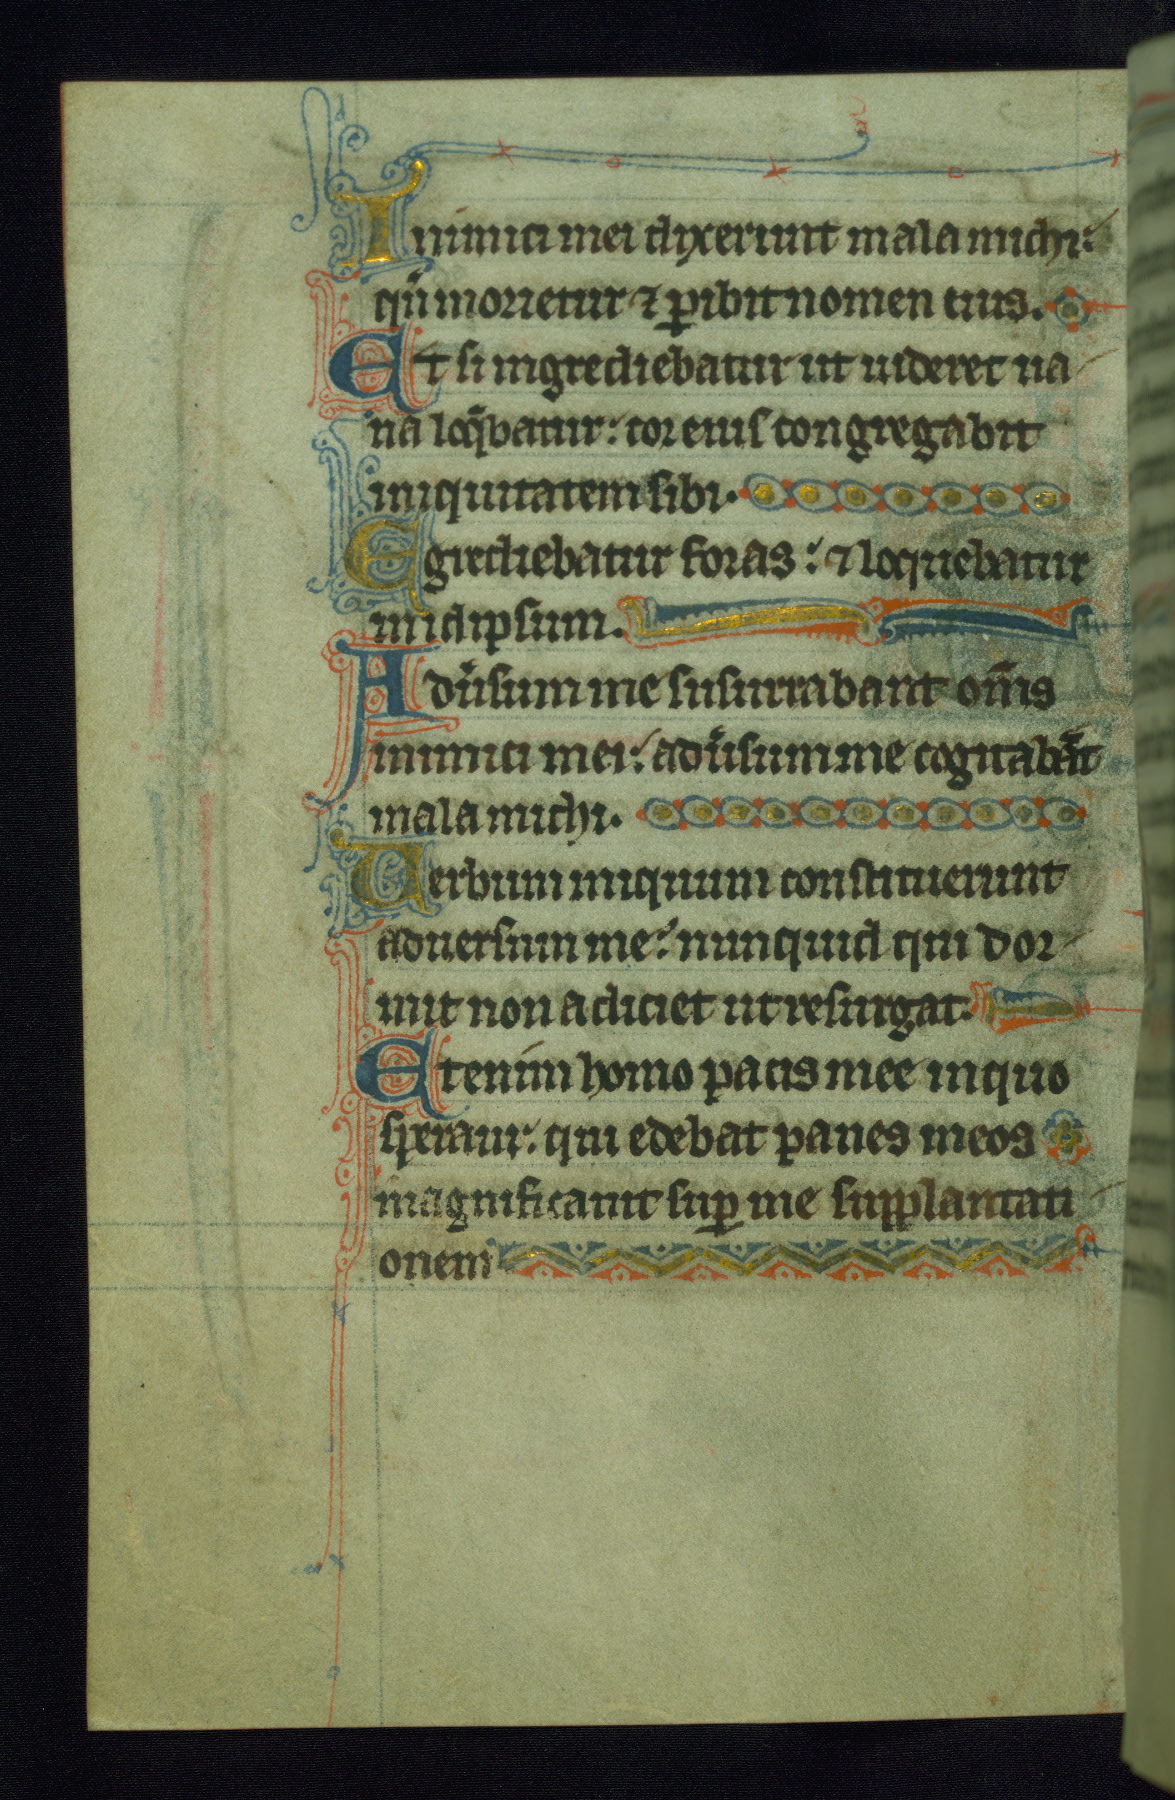 Inimici mei dixerunt mala michi:
qn̄ morietur ⁊ ꝑibit nomen eius.
Et si ingrediebatur ut uideret ua
na loq̄batur: cor eius congregabit
iniquitatem sibi.
Egrediebatur foras: ⁊ loquebatur
in idipsum.
Adūsum me susurrabant om̄is
inimici mei: adūsum me cogitabāt
mala michi.
Uerbum iniquum constituerunt
aduersum me: nunquid qui dor
mit non adiciet ut resurgat.
Etenim homo pacis mee in quo
speraui: qui edebat panes meos
magnificauit suꝑ me supplantati
onem